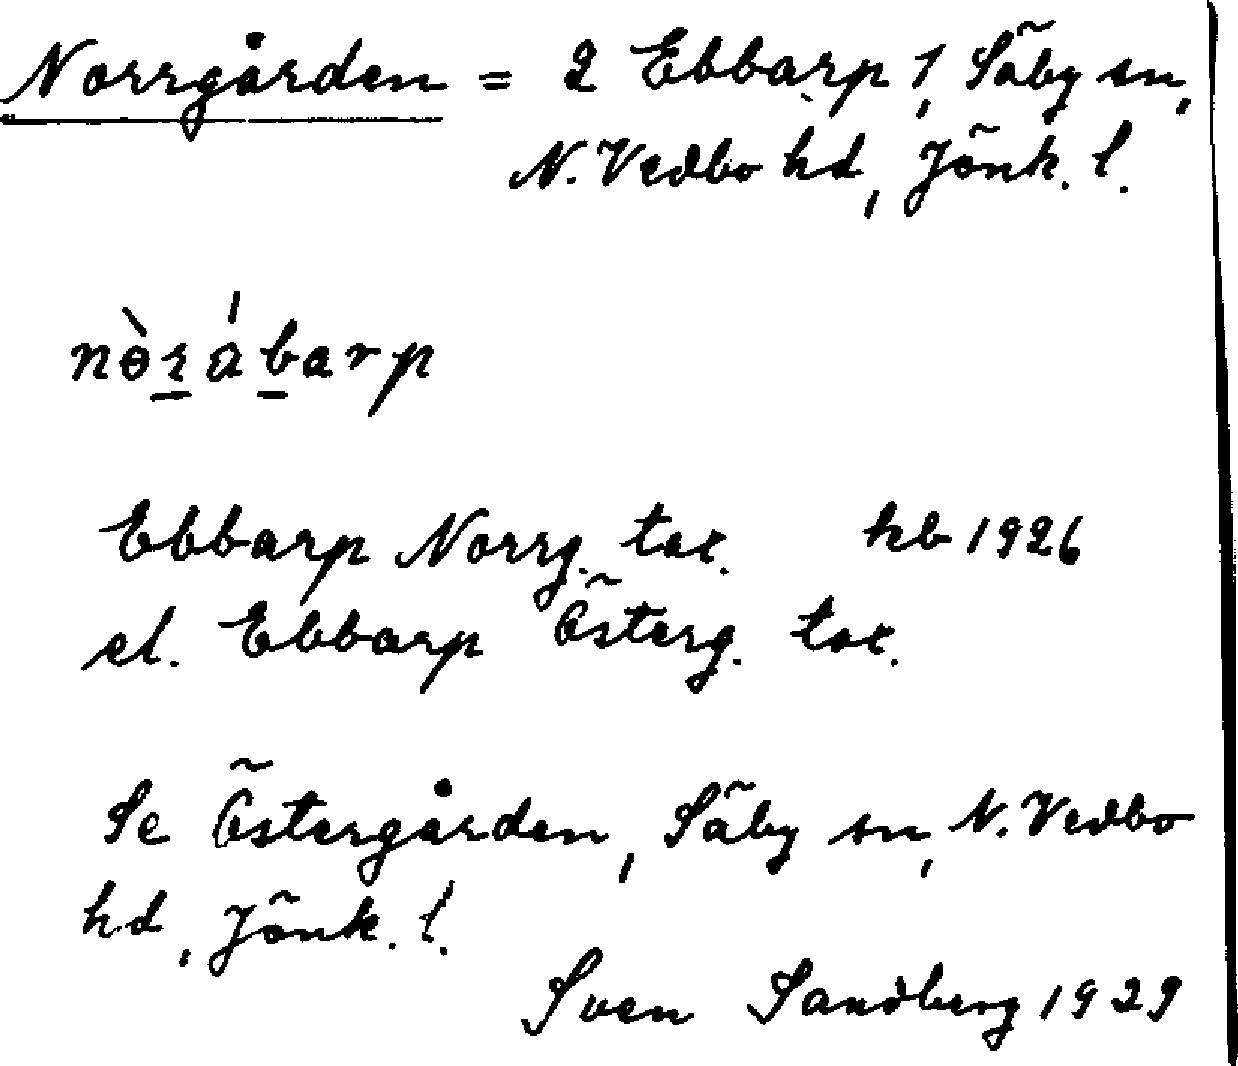 Norrgården = 2 Ebbarp 1, Säby sn,
N. Vedbo hd, Jönk. l.
Ebbarp Norrg. tax. hb 1926
el. Ebbarp Österg. tax.
Se Östergården, Säby sn, N. Vedbo
hd, Jönk. l.
Sven Sandberg 1929